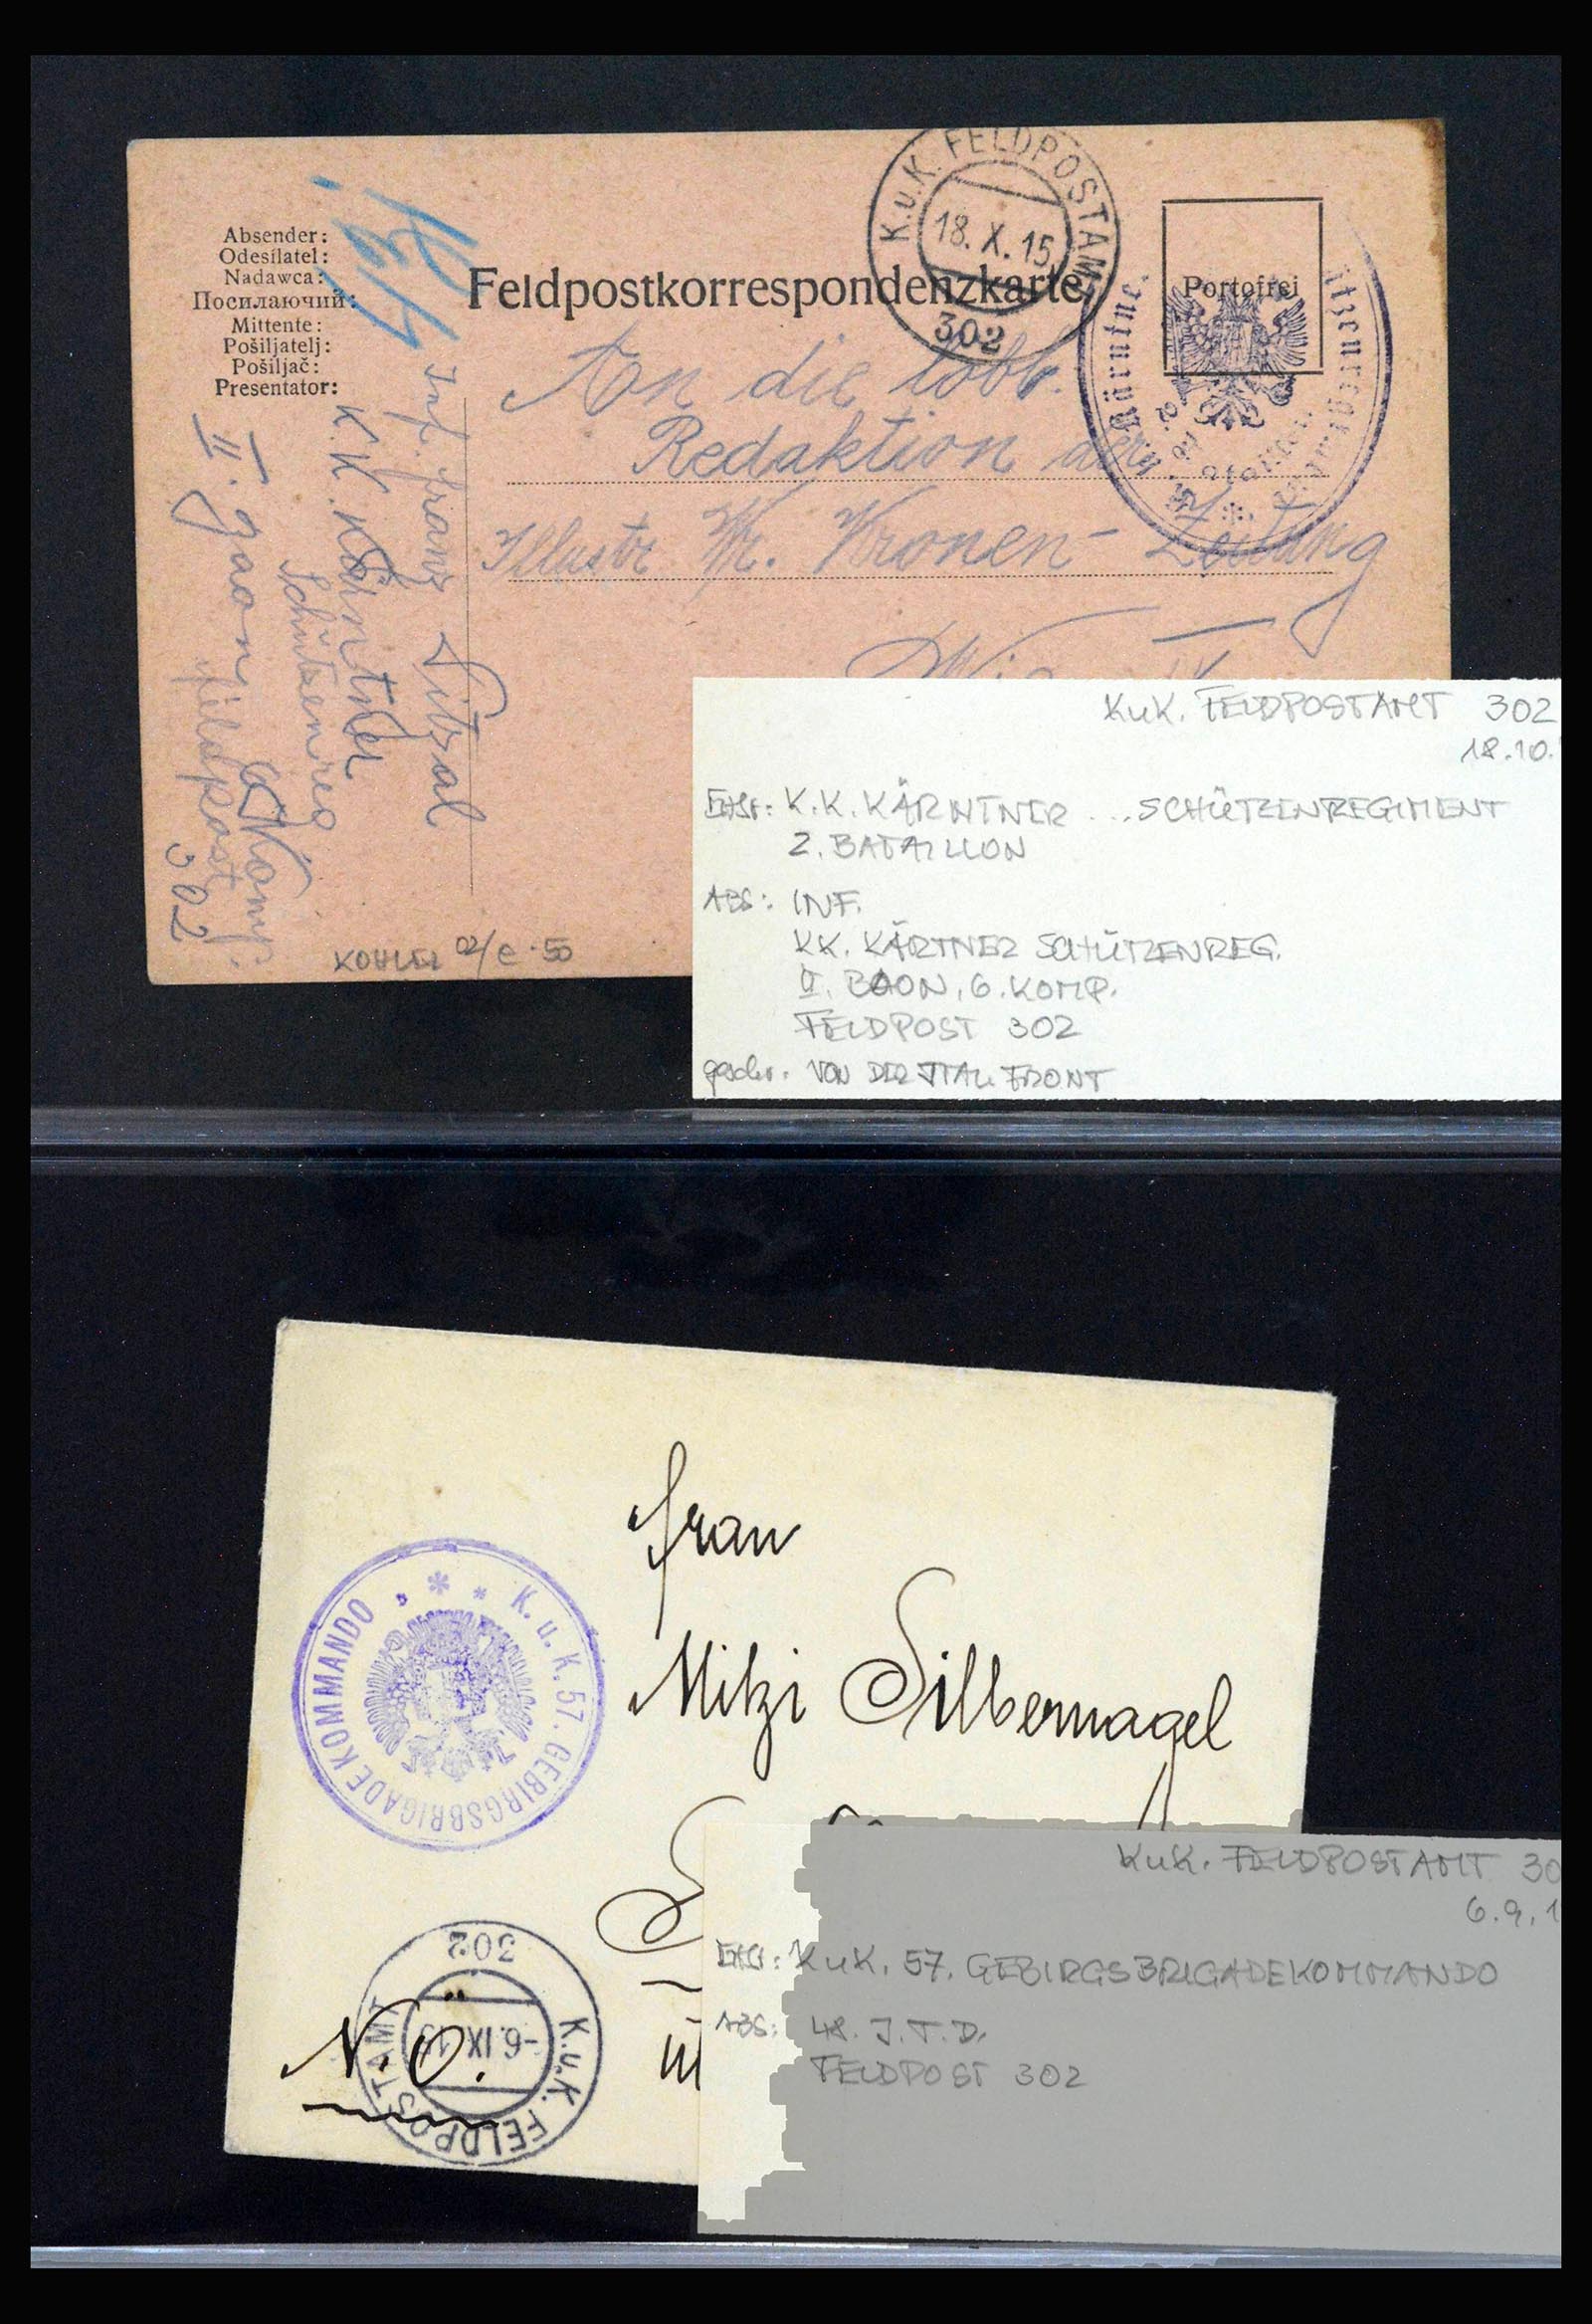 Absender:
Odesílatel:
Nadawca:
Посилаючий:
Mittente:
Pošiljatelj:
Pošiljač:
Presentator:
Feldpostkorrespondenzkarte
K.u.K. FELDPOSTAMT
18. X. 15
302
Portofrei
An die löbl.
Redaktion der
Illustr. Wr. Kronen-Zeitung
Inf. Franz
K.K. Kärntner
Schützenreg
II. Baon 6 Komp.
Feldpost 302
KuK. FELDPOSTAMT 302
18.10.
K.K. KÄRNTNER ... SCHÜTZENREGIMENT
2. BATAILLON
ABS: INF.
KK. KÄRTNER SCHÜTZENREG.
II. BAON, 6. KOMP.
FELDPOST 302
geschr. VON DER ITAL. FRONT
Frau
Mitzi Silbernagel
N.Ö.
* K. u. K. 57. GEBIRGSBRIGADEKOMMANDO
302
-6. IX
K.u.K. FELDPOSTAMT
KuK. FELDPOSTAMT 30
6.9.1
KuK. 57. GEBIRGSBRIGADEKOMMANDO
ABS: 48. J.T.D.
FELDPOST 302